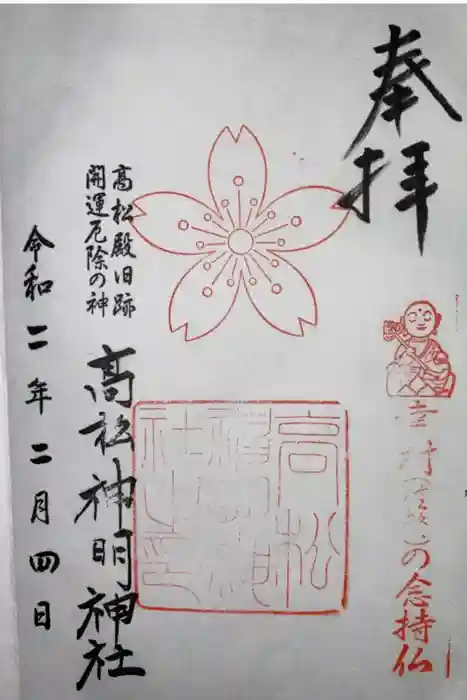 奉拝
の念持仏
高松殿旧跡
開運厄除の神
高松神明神社
高松神明神社之印
令和二年二月四日